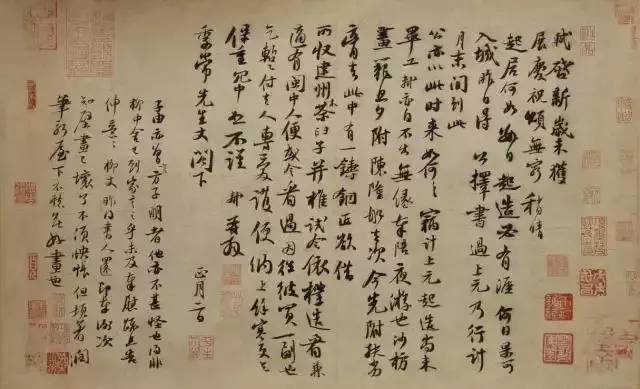 軾啓新歲未獲
展慶祝頌無窮稍晴
起居何如數日起造必有涯何日果可
入城昨日得公擇書過上元乃行計
月末間到此
公亦以此時來如何〻竊計上元起造尚未
畢工軾亦自不出無緣奉陪夜游也沙枋
畫籠旦夕附陳隆船去次今先附扶劣
膏去此中有一鑄銅匠欲借
所收建州木茶臼子并椎試令依樣造看兼
適有閩中人便或令看過因往彼買一副也
乞暫付去人專愛護便納上餘寒更乞
保重冗中恕不謹軾再拜
季常先生丈閣下
正月二日
子由亦曾言方子明者他亦不甚怪也得非
柳中舍已到家言之乎未及奉慰疏且告
伸意〻柳丈昨得書人還即奉謝次
知壁畫已壞了不須怏怏但頓著潤
筆新屋下不愁無好畫也